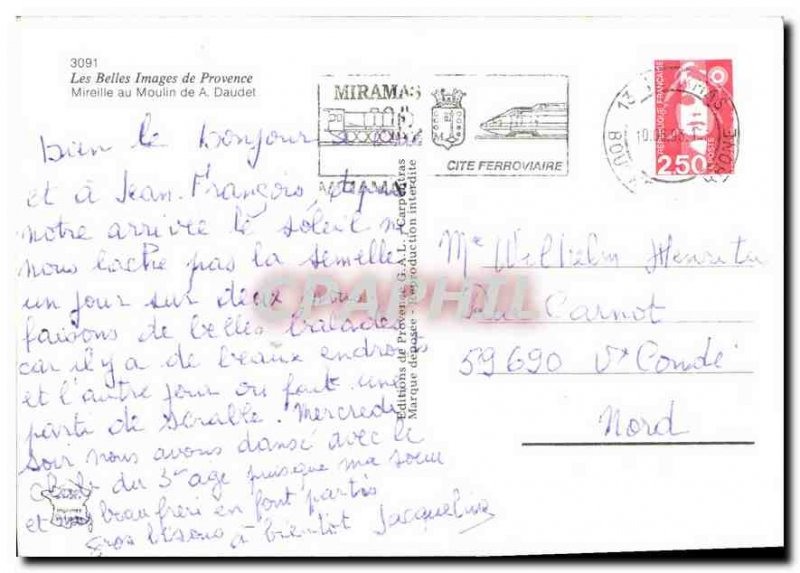 3091
Les Belles Images de Provence
Mireille au Moulin de A. Daudet
MIRAMAS
CITE FERROVIAIRE
MIRAMAS
REPUBLIQUE FRANÇAISE
LA POSTE
2,50
BOUCHES RHONE
Bien le bonjour
et à Jean-François, depuis
notre arrivée le soleil ne
nous lache pas la semelle
un jour sur deux nous
faisons de belles balades
car il y a de beaux endroits
et l'autre jour on fait une
parti de scrable. Mercredi
soir nous avons dansé avec le
club du 3e age puisque ma soeur
et beau frère en font partis
gros bisous à bientot Jacqueline
Editions de Provence G.A.L. Carpentras
Marque déposée - Reproduction interdite
CPAPHIL
Me Wilhelm Henriette
Rue Carnot
59690 Vx Condé
Nord